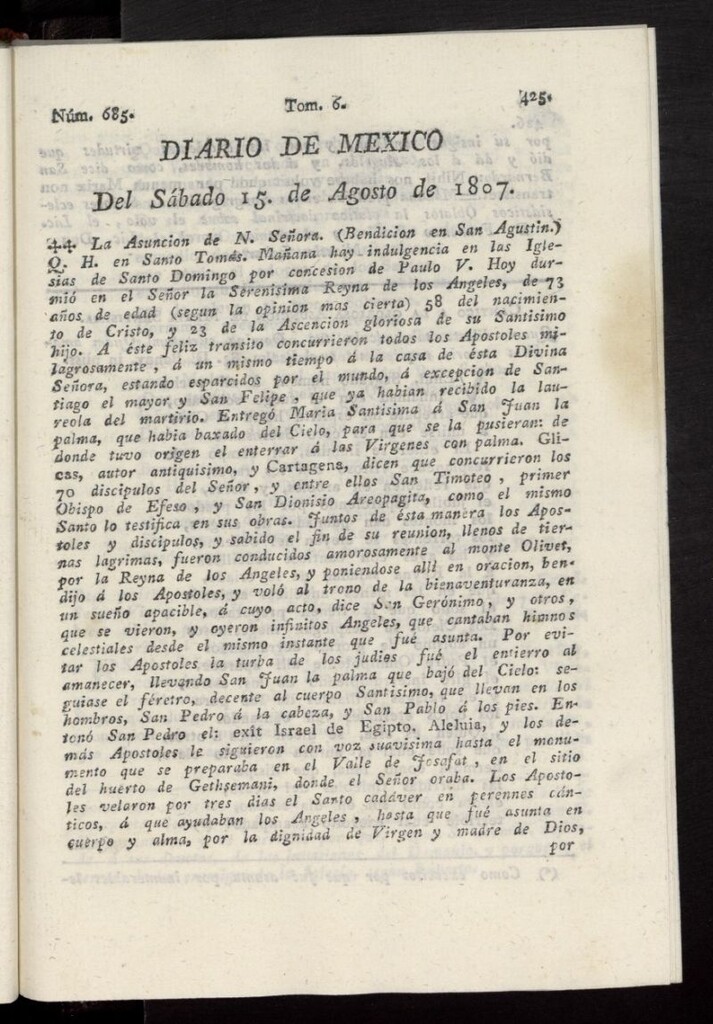 Núm. 685.
Tom. 6.
425.
DIARIO DE MEXICO
Del Sábado 15. de Agosto de 1807.
‡‡ La Asuncion de N. Señora. (Bendicion en San Agustin.)
Q. H. en Santo Tomás. Mañana hay indulgencia en las Igle-
sias de Santo Domingo por concesion de Paulo V. Hoy dur-
mió en el Señor la Serenisima Reyna de los Angeles, de 73
años de edad (segun la opinion mas cierta) 58 del nacimien-
to de Cristo, y 23 de la Ascencion gloriosa de su Santisimo
hijo. A éste feliz transito concurrieron todos los Apostoles mi-
lagrosamente, á un mismo tiempo á la casa de ésta Divina
Señora, estando esparcidos por el mundo, á excepcion de San-
tiago el mayor y San Felipe, que ya habian recibido la lau-
reola del martirio. Entregó Maria Santisima á San Juan la
palma, que habia baxado del Cielo, para que se la pusieran: de
donde tuvo origen el enterrar á las Virgenes con palma. Gli-
cas, autor antiquisimo, y Cartagena, dicen que concurrieron los
70 discipulos del Señor, y entre ellos San Timoteo, primer
Obispo de Efeso, y San Dionisio Areopagita, como el mismo
Santo lo testifica en sus obras. Juntos de ésta manera los Apos-
toles y discipulos, y sabido el fin de su reunion, llenos de tier-
nas lagrimas, fueron conducidos amorosamente al monte Olivet,
por la Reyna de los Angeles, y poniendose allí en oracion, ben-
dijo á los Apostoles, y voló al trono de la bienaventuranza, en
un sueño apacible, á cuyo acto, dice San Gerónimo, y otros,
que se vieron, y oyeron infinitos Angeles, que cantaban himnos
celestiales desde el mismo instante que fué asunta. Por evi-
tar los Apostoles la turba de los judios fué el entierro al
amanecer, llevando San Juan la palma que bajó del Cielo: se-
guiase el féretro, decente al cuerpo Santisimo, que llevan en los
hombros, San Pedro á la cabeza, y San Pablo á los pies. En-
tonó San Pedro el: exît Israel de Egipto. Aleluia, y los de-
más Apostoles le siguieron con voz suavisima hasta el monu-
mento que se preparaba en el Valle de Josafat, en el sitio
del huerto de Gethsemani, donde el Señor oraba. Los Aposto-
les velaron por tres dias el Santo cadáver en perennes cán-
ticos, á que ayudaban los Angeles, hasta que fué asunta en
cuerpo y alma, por la dignidad de Virgen y madre de Dios,
por